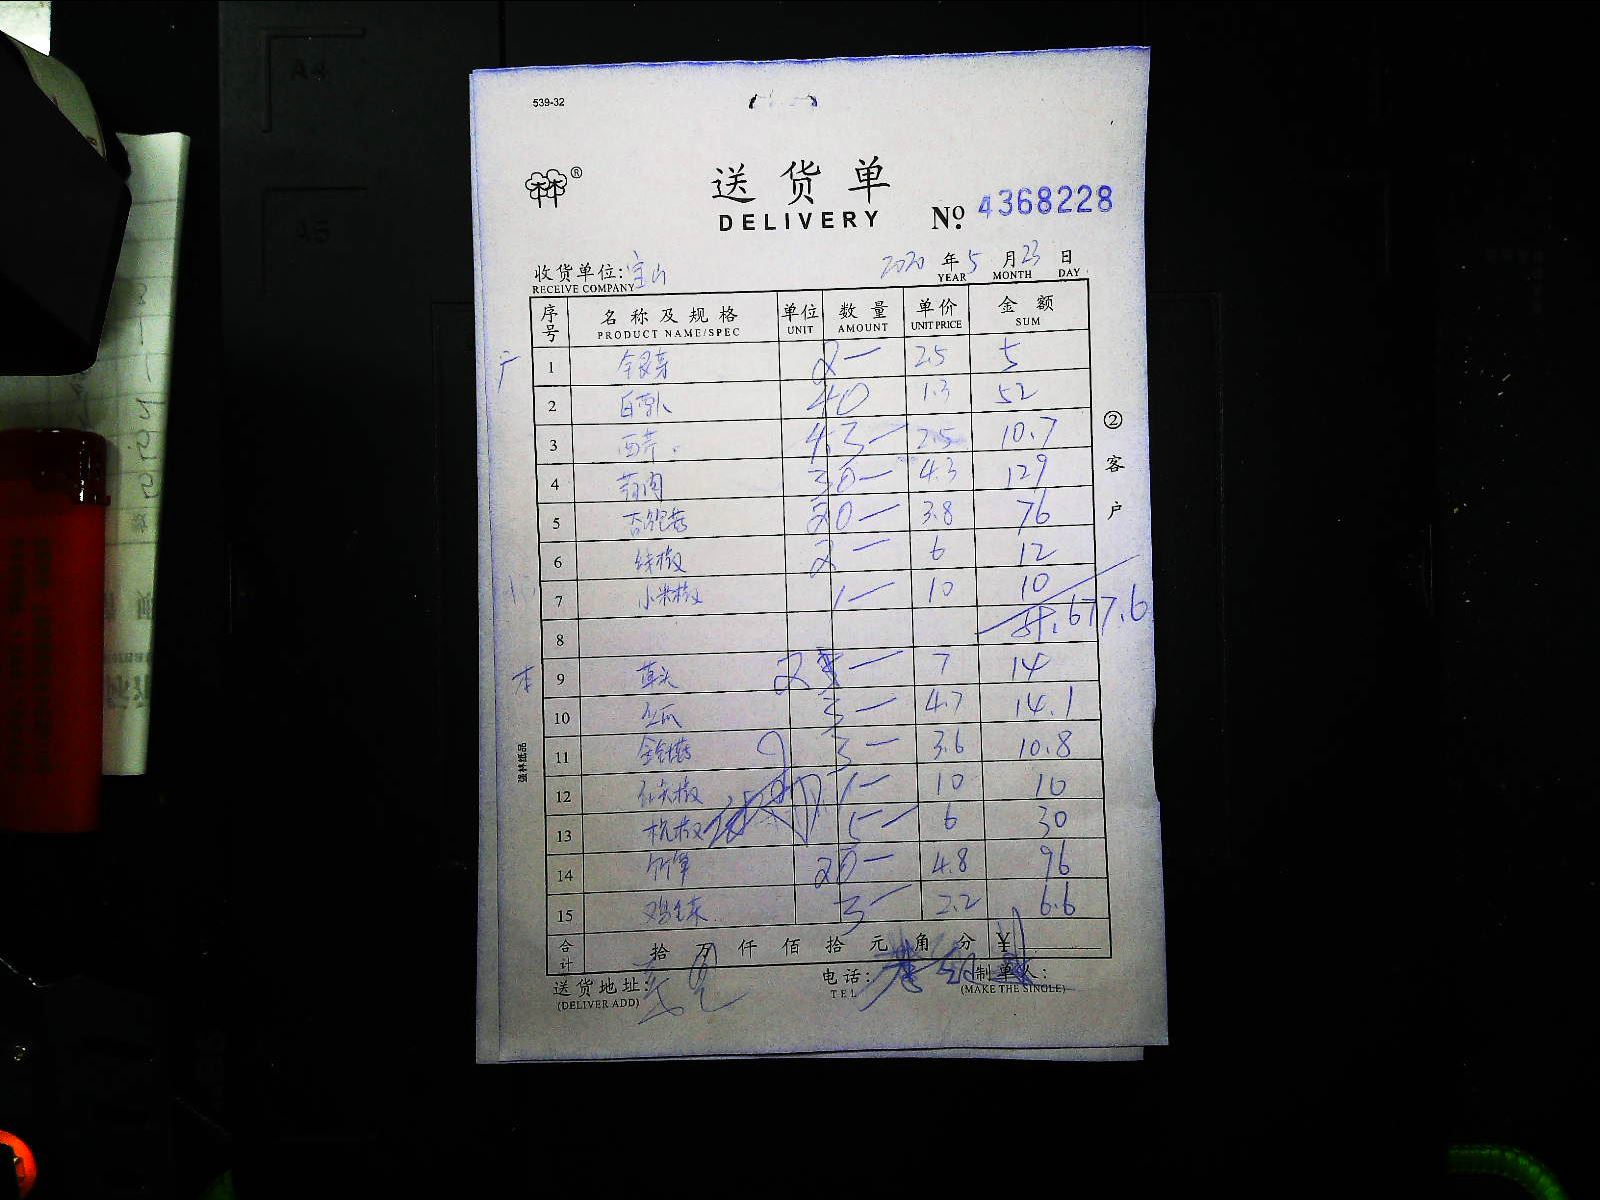 539-32
送货单
DELIVERY
№ 4368228
收货单位: 宝山
RECEIVE COMPANY
2020 年 5 月 23 日
YEAR MONTH DAY
序号 名称及规格 单位 数量 单价 金额
PRODUCT NAME/SPEC UNIT AMOUNT UNIT PRICE SUM
1 银芽 2 — 2.5 5
2 白 40 1.3 52
3 西芹 4.3 — 2.5 10.7
4 30 — 4.3 129
5 杏鲍菇 20 — 3.8 76
6 线椒 2 — 6 12
7 小米椒 1 — 10 10
8 677.6
本 9 草头 2 — 7 14
10 3 — 4.7 14.1
11 3 — 3.6 10.8
12 椒 1 — 10 10
13 杭椒 5 — 6 30
14 20 — 4.8 96
15 鸡毛菜 3 — 2.2 6.6
合计 拾 万 仟 佰 拾 元 角 分 ¥
送货地址: 电话: 制单人:
(DELIVER ADD) TEL (MAKE THE SINGLE)
② 客户
强林纸品
A4
A5